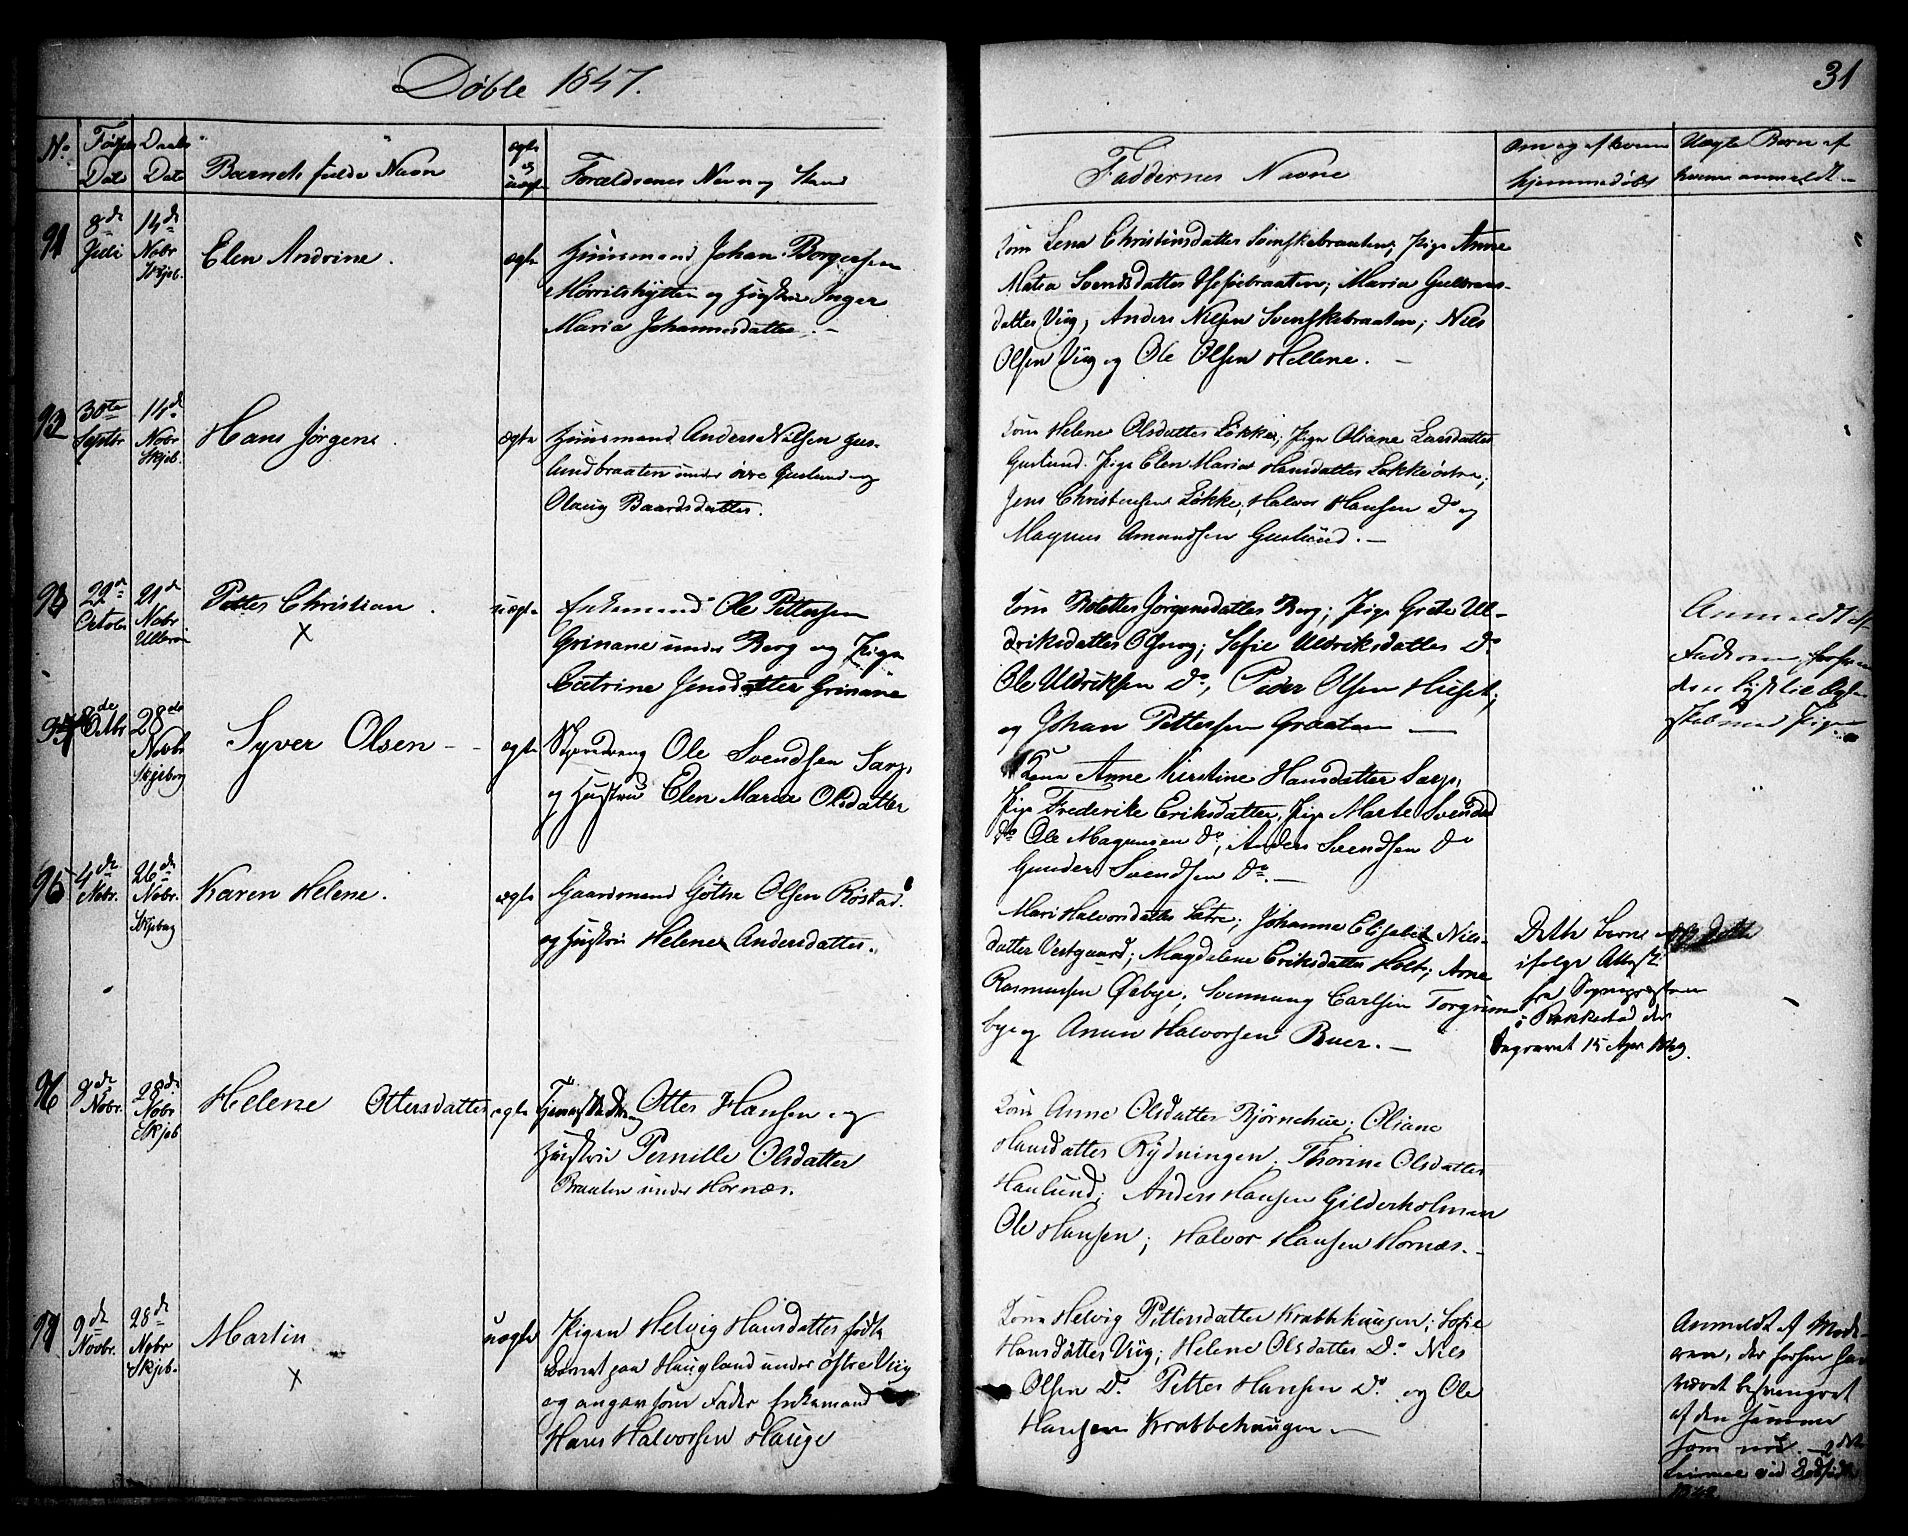 Døbte 1847.
31
No.
Fødsels
Date
Daabs
Date
Barnets fulde Navn
ægte
og
uægte
Forældrenes Navn og Stand
Faddernes Navne
Om og af hvem
hjemmedøbt
Uægte Børn af
hvem anmeldt
91
8de
Juli
14de
Novbr
Skjeb.
Elen Andrine.
ægte
Huusmand Johan Borgersen
Mørritshytten og Hustrue Inger
Maria Johannesdatter. —
Kone Lena Christensdatter Svenskebraaten; Pige Anne
Matea Svendsdatter; Maria Gulbrands-
datter Viig, Anders Nilsen Svenskebraaten; Niels
Olsen Viig og Ole Olsen Hellene. —
92
30te
Septbr
14de
Novbr
Skjeb.
Hans Jørgen.
ægte
Huusmand Anders Nilsen Gus-
lundbraaten under øvre Guslund og
Olaug Baardsdatter.
Kone Helene Olsdatter Løkke; Pige Oliane Larsdatter
Guslund. Pige Elen Maria Hansdatter Løkke østre;
Jens Christensen Løkke, Halvor Hansen Do og
Magnus Amundsen Guslund. —
93
22de
Octobr
21de
Novbr
Ullerøe
Petter Christian.
X
uægte
Enkemand Ole Pettersen
Grinane under Berg og Pige
Catrine Jensdatter Grinane
Kone Bolette Jørgensdatter Berg; Pige Grete Ul-
driksdatter; Sofie Uldriksdatter Do
Ole Uldriksen Do, Peder Olsen Huset;
og Johan Pettersen Graaten —
Anmeldt af
Faderen
94
8de
Octbr
28de
Novbr
Skjeberg
Syver Olsen —
ægte
Ole Svendsen Sarp.
og Hustru Elen Maria Olsdatter
Kone Anne Kirstine Hansdatter Sarp,
Pige Frederike Eriksdatter, Pige Marte Svendsd
Do Ole Magnusen Do, Anders Svendsen Do
Gunder Svendsen Do. —
95
4de
Novbr.
26de
Novbr.
Skjeberg
Karen Helene.
ægte
Gaardmand Gøthe Olsen Røstad.
og Hustrue Helene Andersdatter.
Mari Halvorsdatter Sætre; Johanne Elisabet Niels-
datter Vestgaard; Magdalene Eriksdatter Holt; Arne
Rasmussen Øsbye; Svennung Carlsen Torgrim-
bye og Anun Halvorsen Buer. —
Dette Barn er
ifølge Attest
fra Sognepræsten
i Rakkestad der
begravet 15 Apr 1849.
96
9de
Novbr.
28de
Novbr
Skjeb
Helene Ottersdatter
ægte
Otter Hansen og
Hustrue Pernille Olsdatter
Braaten under Hornæs.
Kone Anne Olsdatter Bjørnehue; Oliane
Hansdatter Rydningen. Thorine Olsdatter
Haulund; Anders Hansen Gilderholmen
Ole Hansen; Halvor Hansen Hornæs. —
97
9de
Novbr.
28de
Novbr
Skjeb.
Martin
X
uægte
Pigen Helvig Hansdatter fødte
Barnet paa Haugland under østre Viig
og angav som Fader Enkemand
Hans Halvorsen Hauge
Kone Helvig Pettersdatter Krabbehaugen; Sofie
Hansdatter Viig; Helene Olsdatter Do Niels
Olsen Do Petter Hansen Do og Ole
Hansen Krabbehaugen. —
Anmeldt af Mode-
ren, der forhen har
været besvangret
af den samme
som nu. —